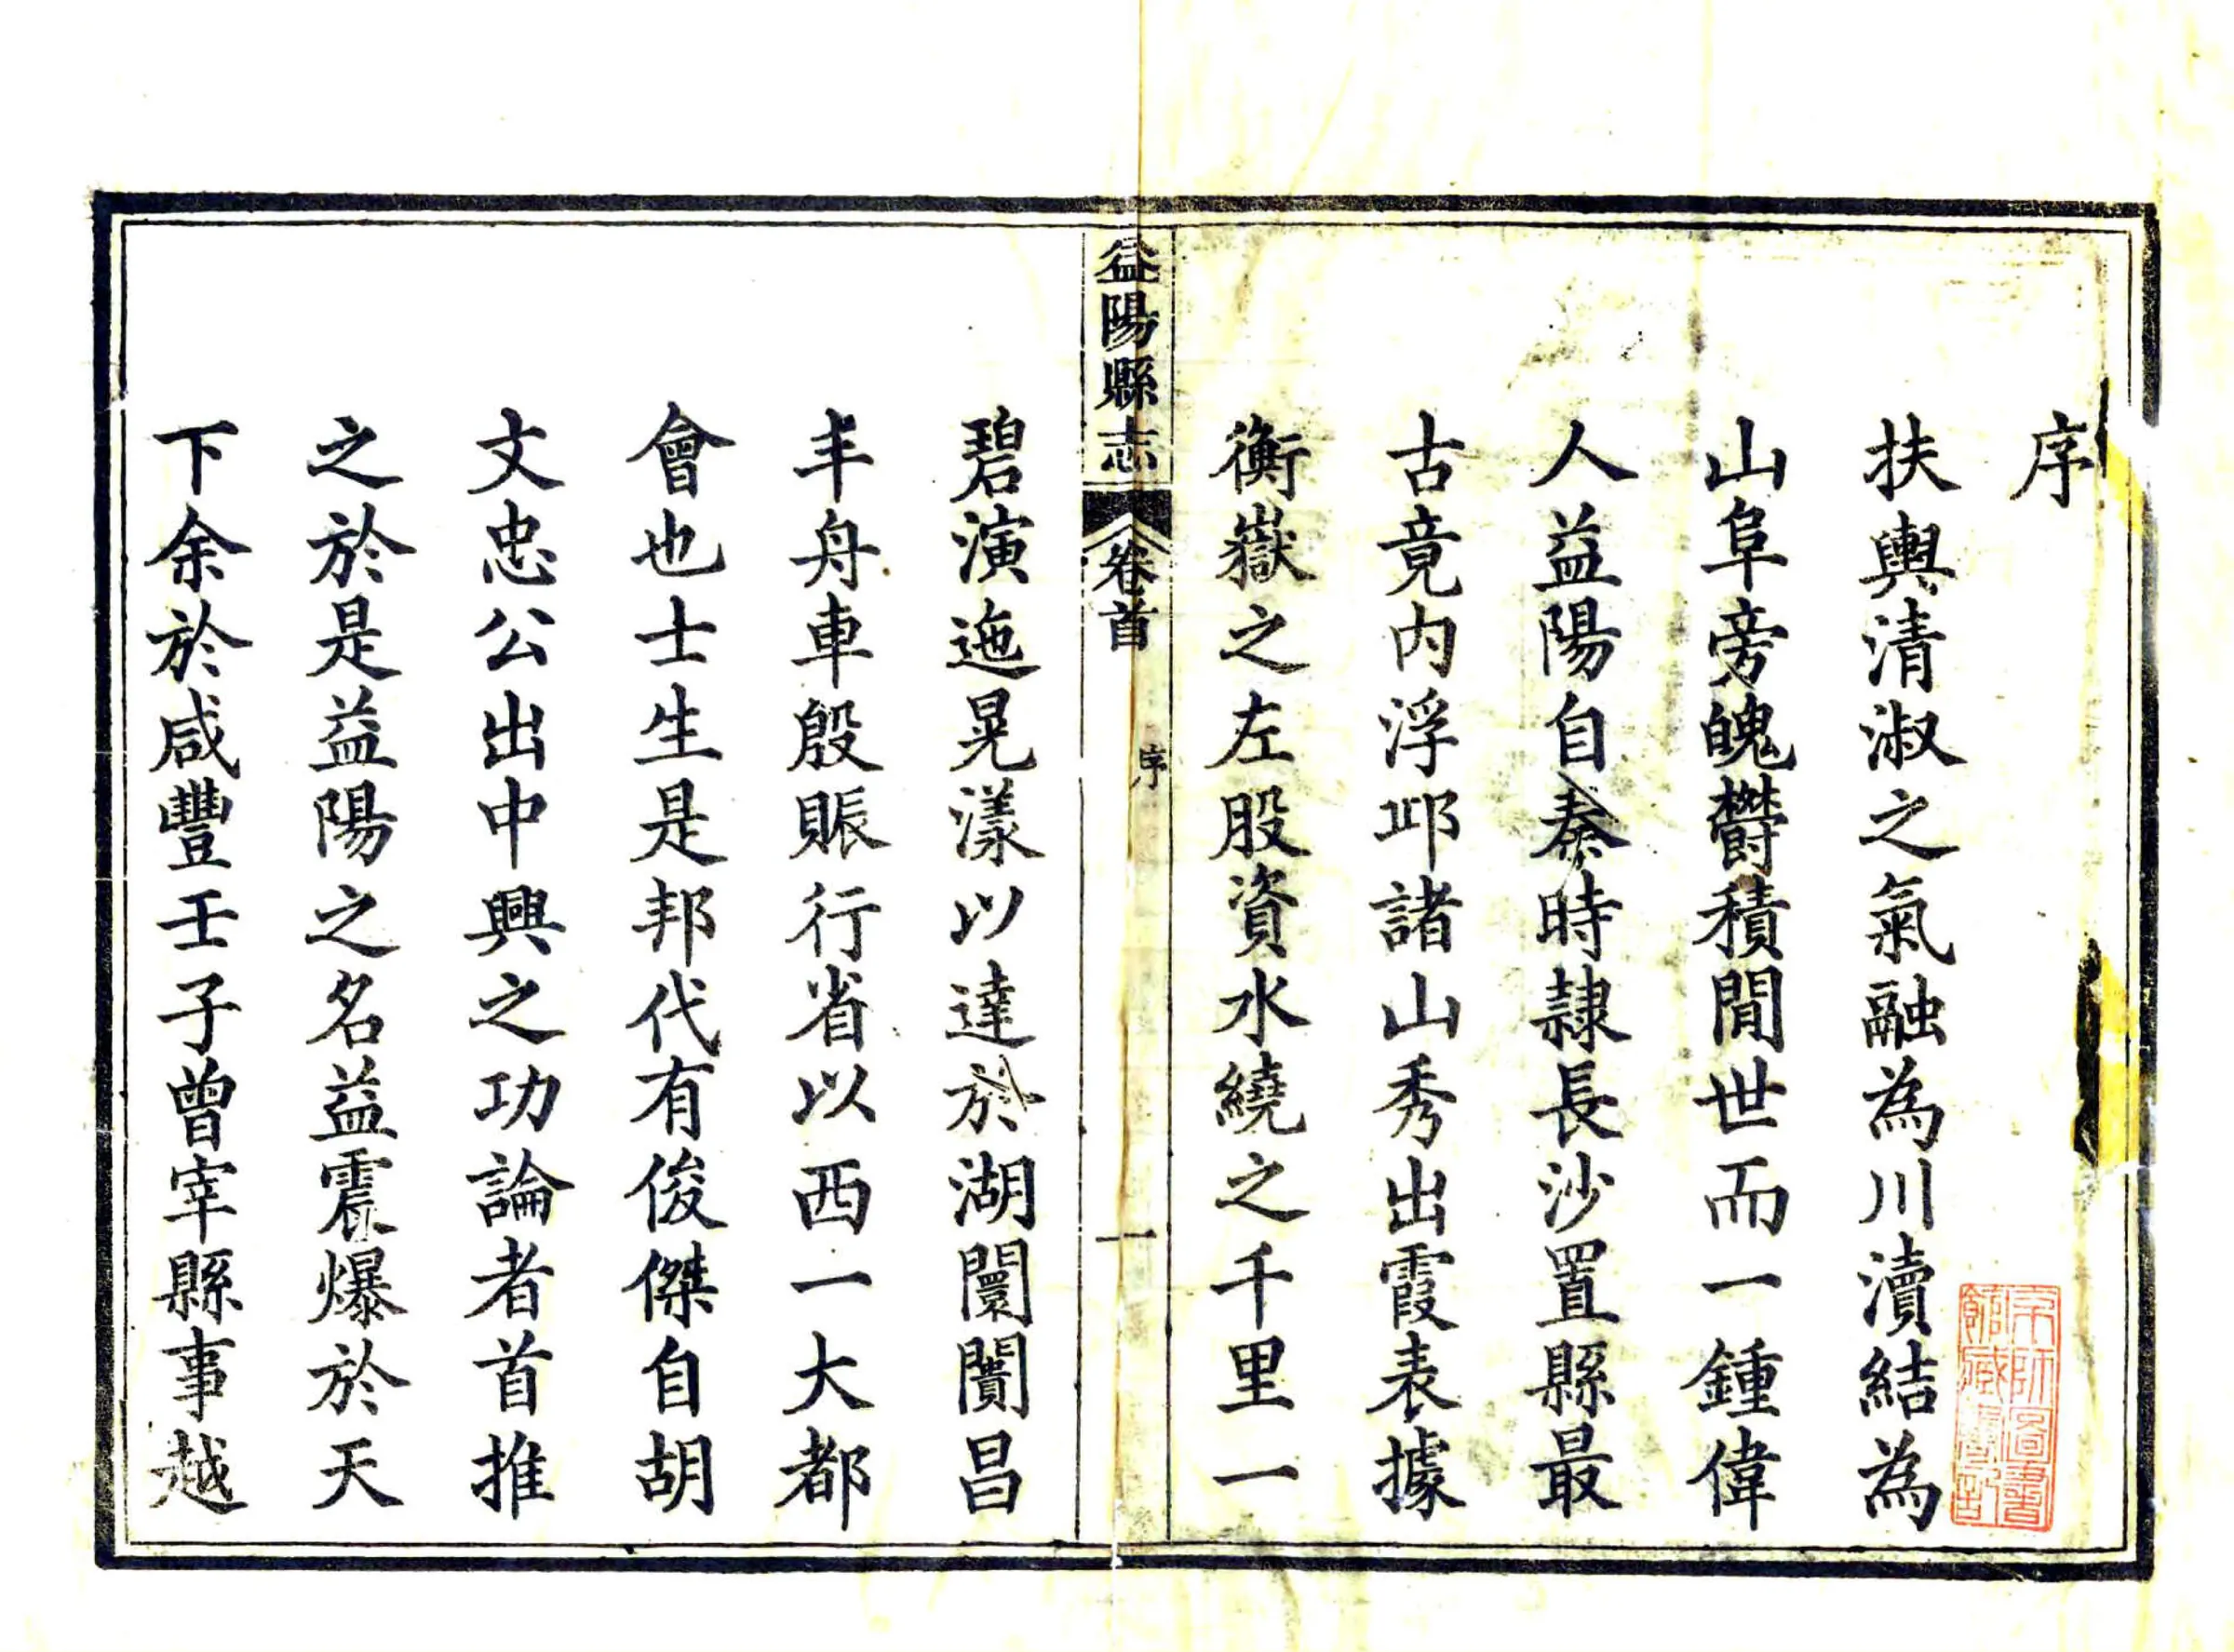 序
扶輿清淑之氣融為川瀆結為
山阜旁魄欝積閒世而一鍾偉
人益陽自秦時隷長沙置縣最
古竟內浮邱諸山秀出霞表據
衡嶽之左股資水繞之千里一
益陽縣志 卷首 序 一
碧演迤晃漾以達於湖闤闠昌
丰舟車殷賑行省以西一大都
會也士生是邦代有俊傑自胡
文忠公出中興之功論者首推
之於是益陽之名益震爆於天
下余於咸豐壬子曾宰縣事越